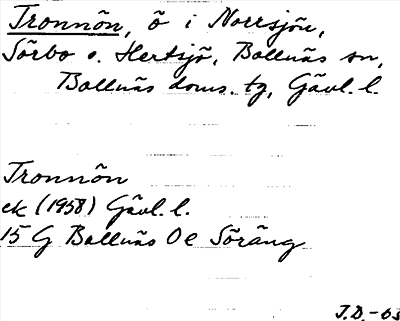 Tronnön, ö i Norrsjön,
Sörbo o. Hertsjö, Bollnäs sn,
Bollnäs doms. tg, Gävl. l.
Tronnön
ek (1958) Gävl. l.
15 G Bollnäs O e Söräng
J.D.-63